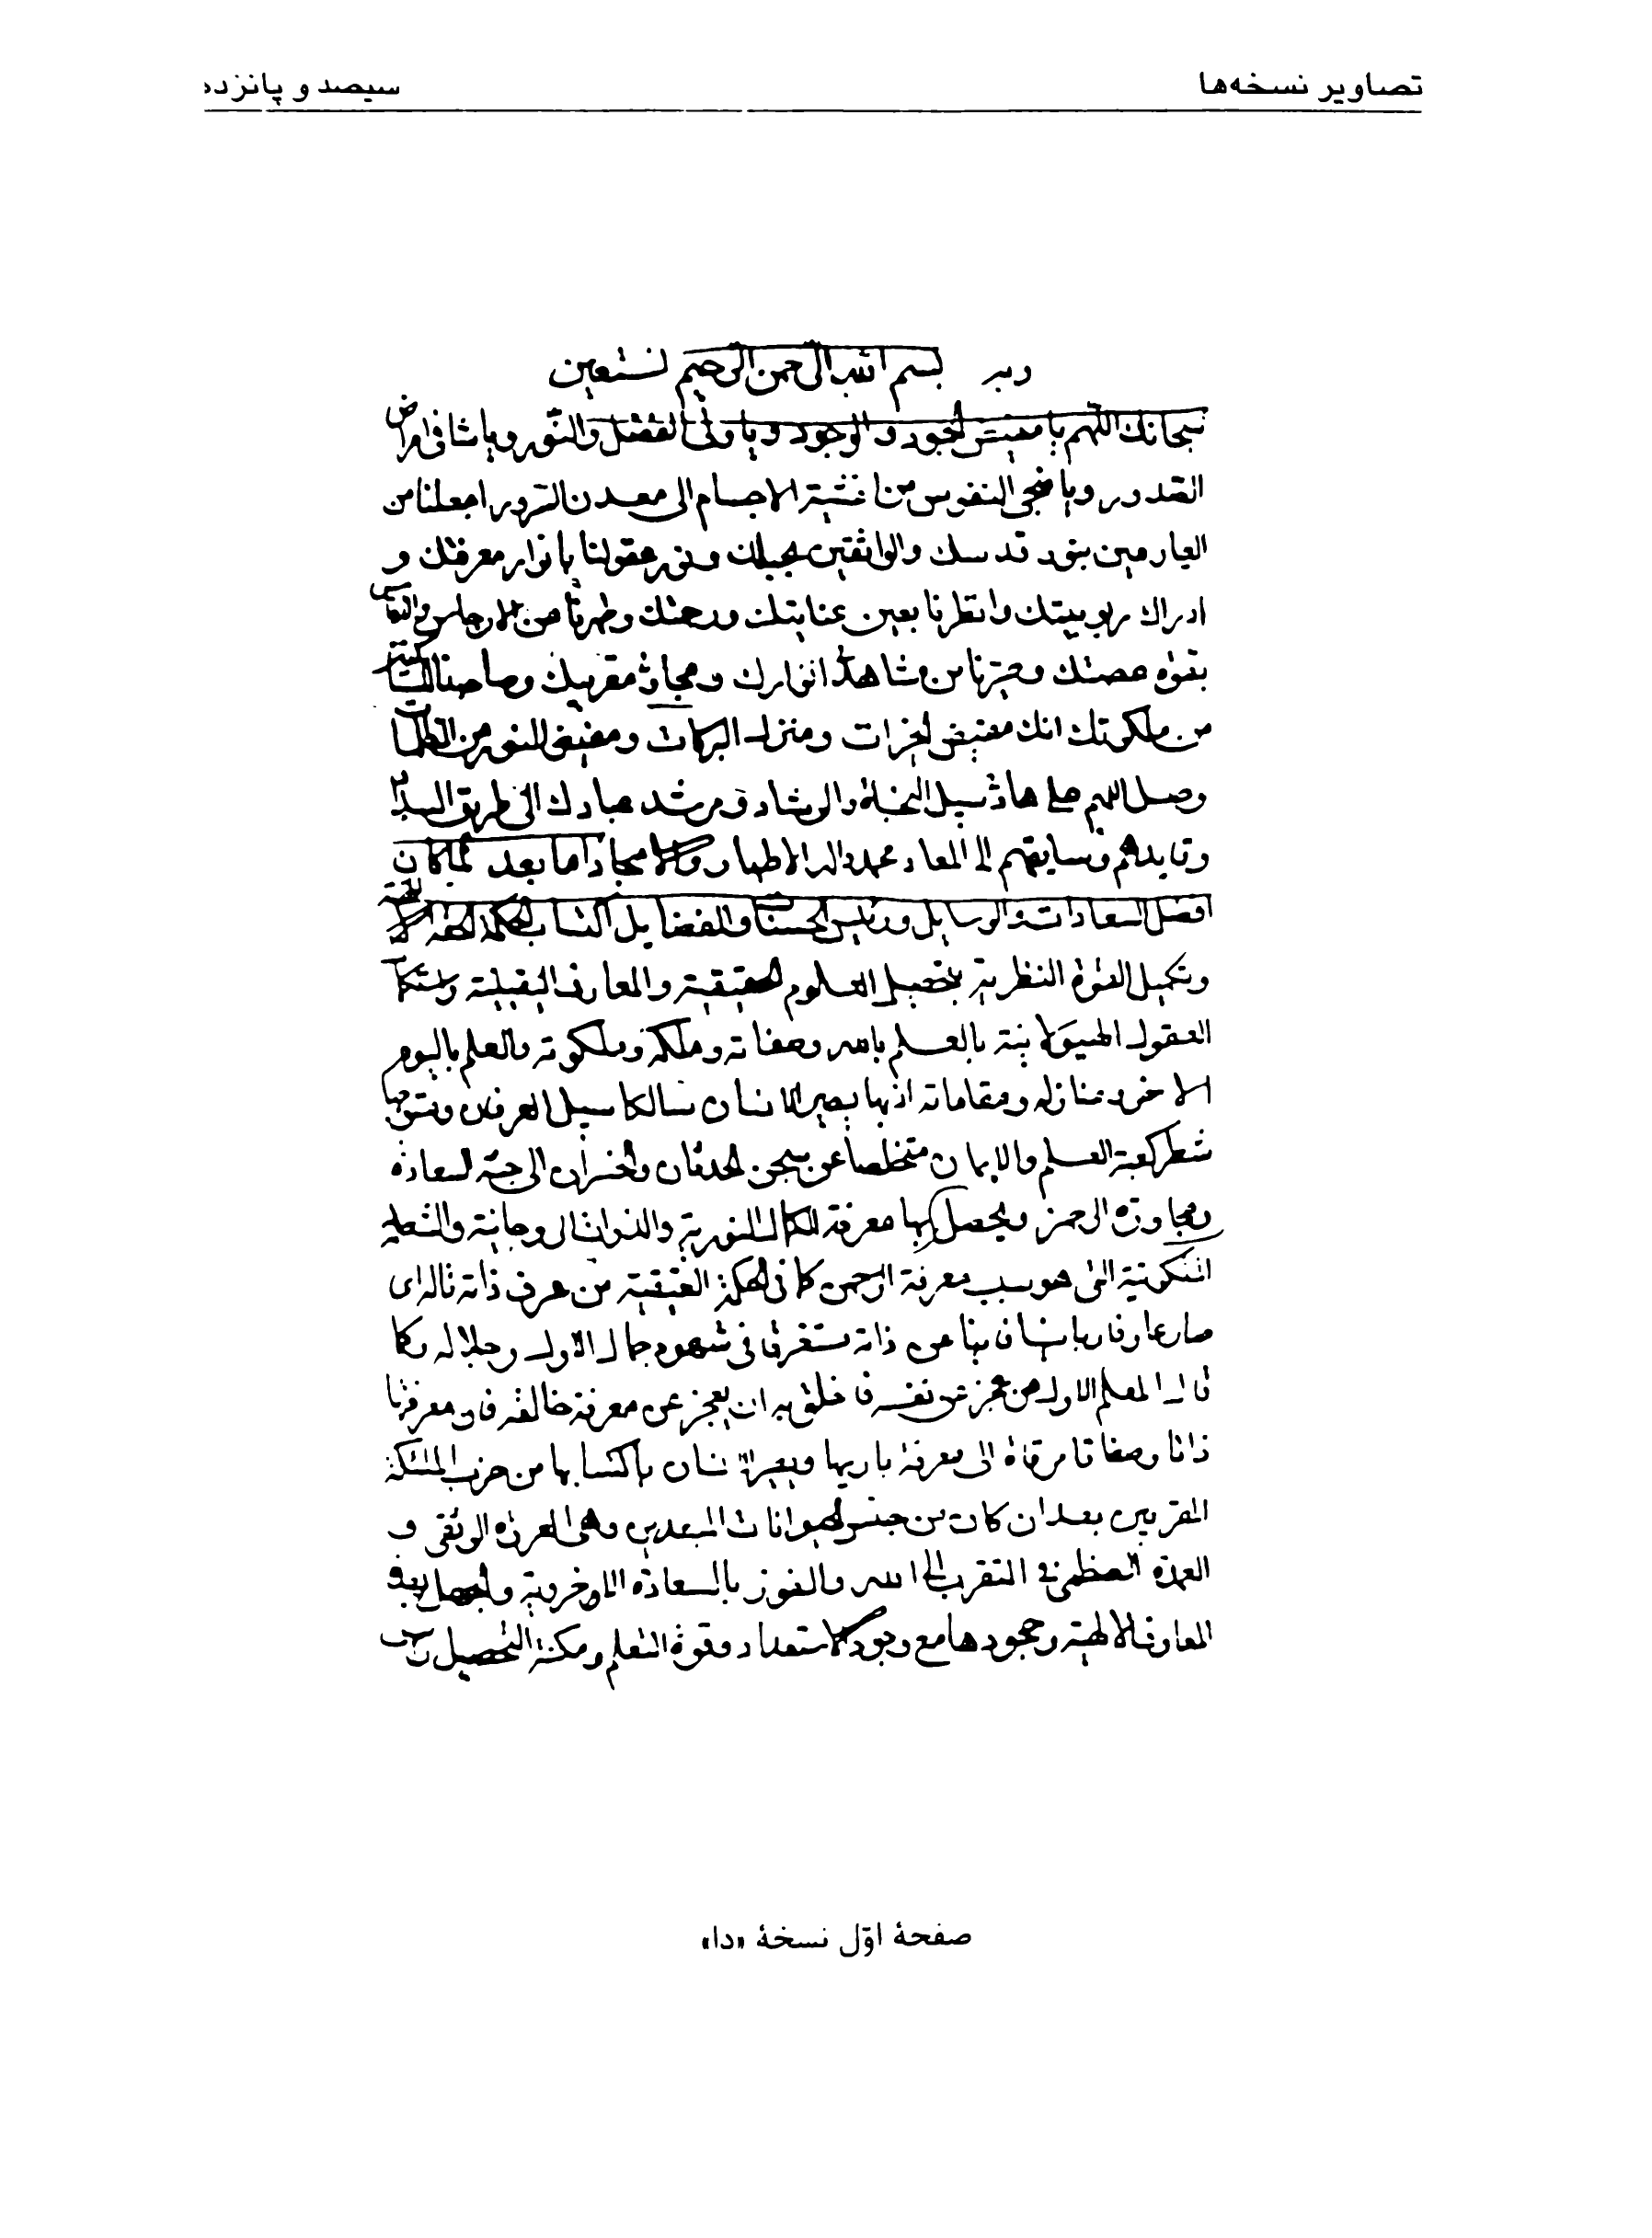 تصاویر نسخه‌ها
سیصد و پانزده
وبه بسم الله الرحمن الرحيم نستعين
سبحانك اللهم يا مفيض الجود والوجود ويا ولى الفضل والنور ويا شافى امراض
الصدور ويا منجى النفوس من خشية الاجسام الى معدن السرور اجعلنا من
العارفين بنور قدسك والواثقين بحبلك ونور عقولنا بانوار معرفتك و
ادراك ربوبيتك وانظرنا بعين عنايتك ورحمتك وطهرنا من الارجاس والنقايص
بقوة عصمتك وصيرنا من مشاهدى انوارك ومجاورى مقربيك ومصاحبى الساكنين
من ملكوتك انك مفيض الخيرات ومنزل البركات ومفيض النور من الظلمات
وصل اللهم على هادى سبيل النجاة والرشاد ومرشد عبادك الى طريق السداد
وقايدهم وسايقهم الى المعاد محمد واله الاطهار الامجاد اما بعد لما كان
افضل السعادات والوسايل ورئيس الحسنات والفضايل اكتساب الحكمة الحقة
وتكميل القوة النظرية بتحصيل العلوم الحقيقية والمعارف اليقينية واستكمال
العقول الهيولانية بالعلم بالله وصفاته وملكه وملكوته والعلم باليوم
الاخر ومنازله ومقاماته اذ بها يصير الانسان سالكا سبيل العرفان ومتوجها
شطر كعبة العلم والايمان متخلصا عن سجن الحدثان والخسران الى جنة السعادة
ومجاورة الرحمن ويحصل بها معرفة الكمال النورية والذوات الروحانية والشعلة
الملكوتية التى هو سبب معرفة الرحمن كما فى الحكمة العتيقية من عرف ذاته تاله اى
صار عارفا ربانيا فانيا عن ذاته مستغرقا فى شهود جمال الاول وجلاله وكما
قال المعلم الاول من عجز عن نفسه فاخلق به ان يعجز عن معرفة خالقه فان معرفتها
ذاتا وصفاتا مرقاة الى معرفة باريها ويصير الانسان باكتسابها من حزب الملئكة
المقربين بعد ان كان من جنس الحيوانات المبعدين وهى العروة الوثقى و
العمدة العظمى فى التقرب الى الله والفوز بالسعادة الاخروية والجهل بهذه
المعارف الالهية وجحودها مع وجود الاستعداد وقوة التعلم ومكنة التحصيل
صفحهٔ اوّل نسخهٔ «دا»